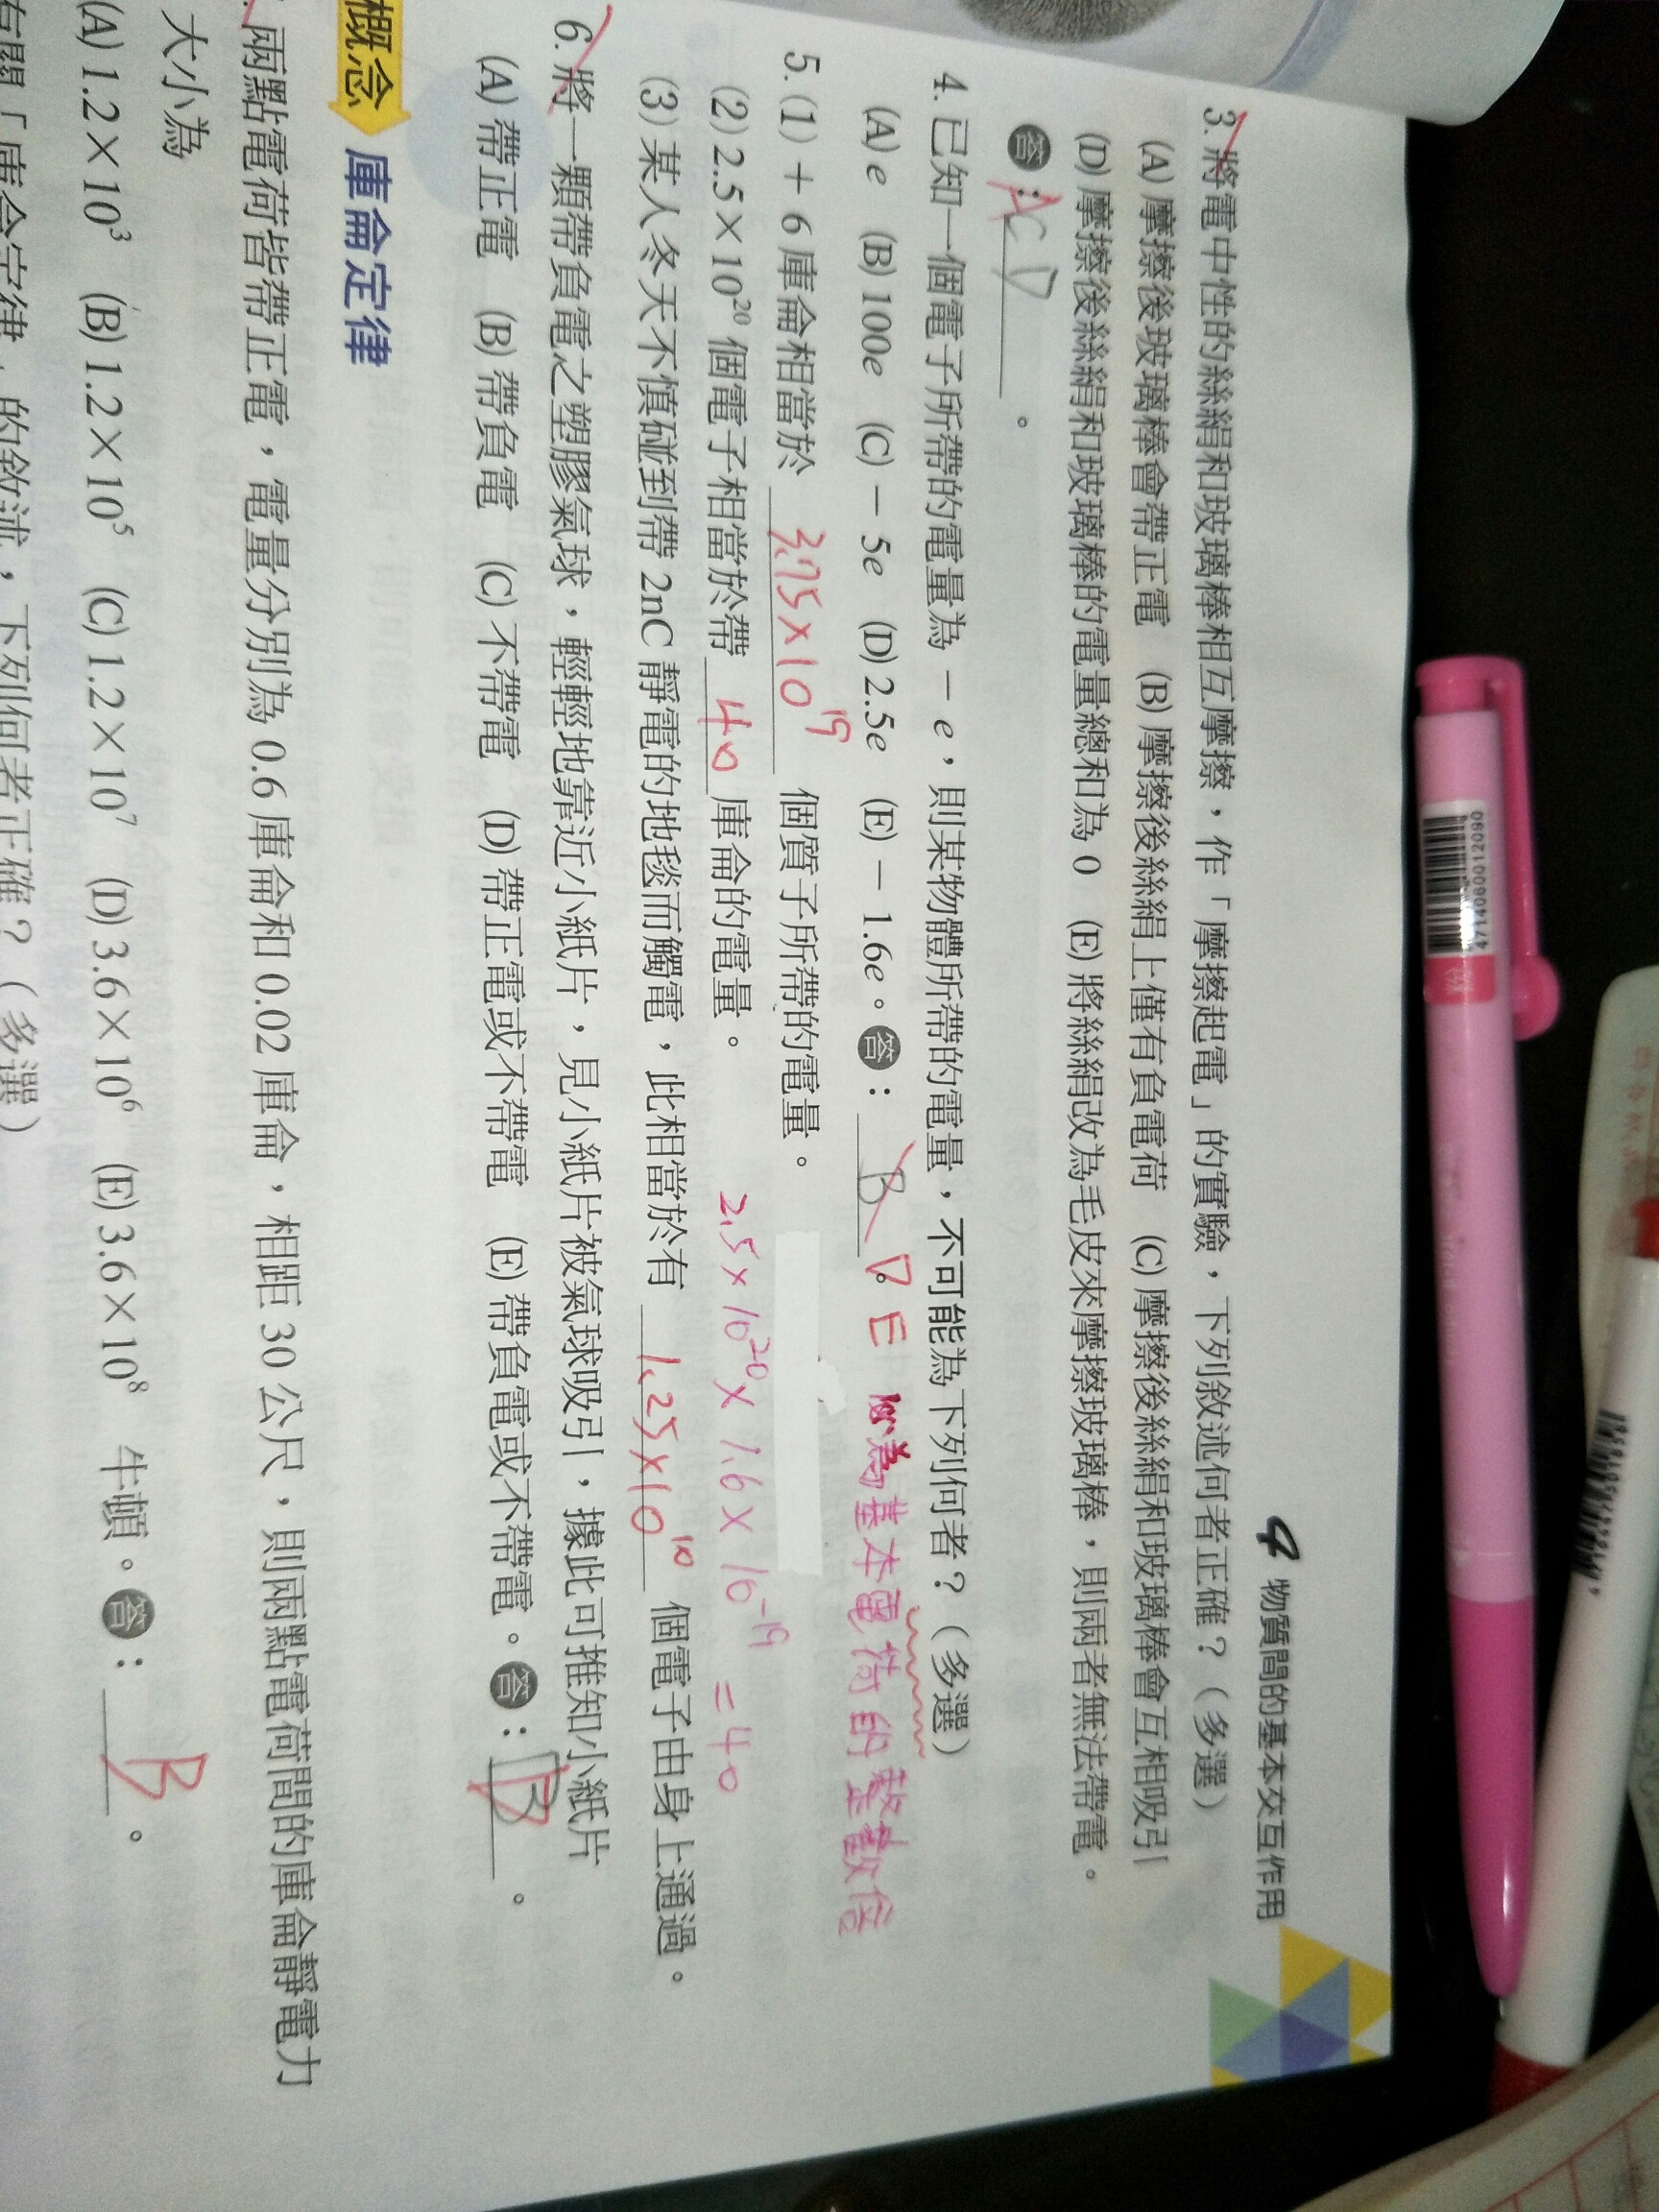 4 物質間的基本交互作用
3. 將電中性的絲絹和玻璃棒相互摩擦，作「摩擦起電」的實驗，下列敘述何者正確？（多選）
(A) 摩擦後玻璃棒會帶正電 (B) 摩擦後絲絹上僅有負電荷 (C) 摩擦後絲絹和玻璃棒會互相吸引
(D) 摩擦後絲絹和玻璃棒的電量總和為 0 (E) 將絲絹改為毛皮來摩擦玻璃棒，則兩者無法帶電。
答：ACD。
4. 已知一個電子所帶的電量為 － e，則某物體所帶的電量，不可能為下列何者？（多選）
(A) e (B) 100e (C) － 5e (D) 2.5e (E) － 1.6e。答：B。DE 為基本電荷的整數倍
5. (1) ＋ 6 庫侖相當於 3.75×10¹⁹ 個質子所帶的電量。
(2) 2.5×10²⁰ 個電子相當於帶 40 庫侖的電量。 2.5×10²⁰×1.6×10⁻¹⁹=40
(3) 某人冬天不慎碰到帶 2nC 靜電的地毯而觸電，此相當於有 1.25×10¹⁰ 個電子由身上通過。
6. 將一顆帶負電之塑膠氣球，輕輕地靠近小紙片，見小紙片被氣球吸引，據此可推知小紙片
(A) 帶正電 (B) 帶負電 (C) 不帶電 (D) 帶正電或不帶電 (E) 帶負電或不帶電。答：D。
概念 庫侖定律
兩點電荷皆帶正電，電量分別為 0.6 庫侖和 0.02 庫侖，相距 30 公尺，則兩點電荷間的庫侖靜電力
大小為
(A) 1.2×10³ (B) 1.2×10⁵ (C) 1.2×10⁷ (D) 3.6×10⁶ (E) 3.6×10⁸ 牛頓。答：B。
有關「庫侖定律」的敘述，下列何者正確？（多選）